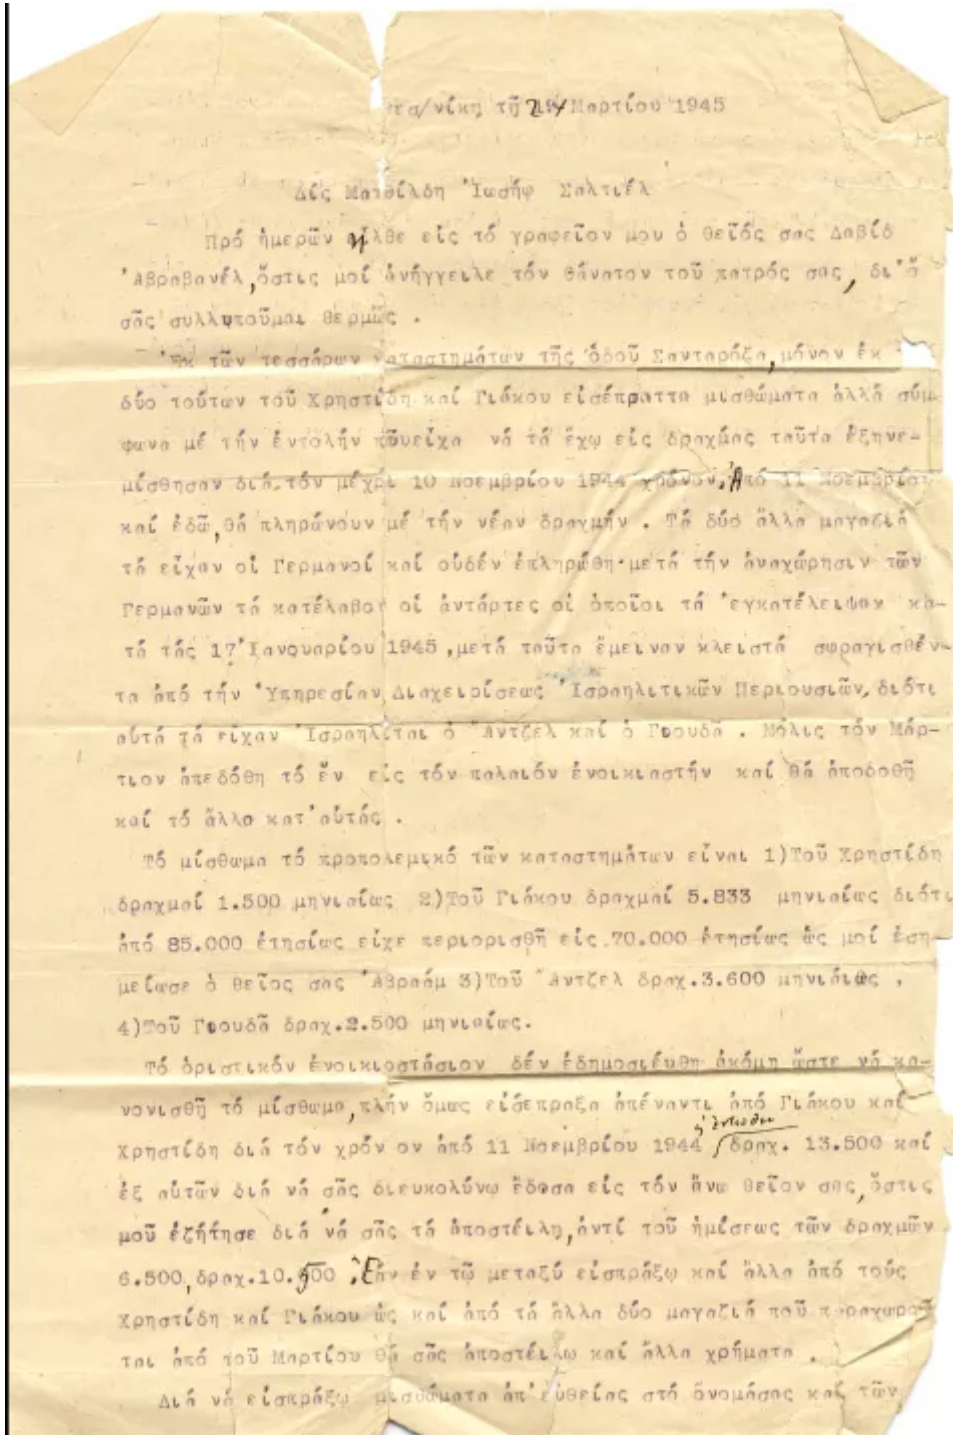 τα/νίκη τῇ Μαρτίου 1945
Δίς Ματθίλδη Ἰωσήφ Σαλτιέλ
Πρό ἡμερῶν ἦλθε εἰς τό γραφεῖον μου ὁ θεῖός σας Δαβίδ
Ἀβραβανέλ,ὅστις μοί ἀνήγγειλε τόν θάνατον τοῦ πατρός σας, δι'ὅ
σᾶς συλλυποῦμαι θερμῶς .
Ἐκ τῶν τεσσάρων καταστημάτων τῆς ὁδοῦ Σανταρόζα,μόνον ἐκ
δύο τούτων τοῦ Χρηστίδη καί Γιάκου εἰσέπραττα μισθώματα ἀλλά σύμ-
φωνα μέ τήν ἐντολήν πουεἶχα νά τά ἔχῳ εἰς δραχμάς ταῦτα ἐξηνε-
μίσθησαν διά τόν μέχρι 10 Νοεμβρίου 1944 χρόνον.Ἀπό 11 Νοεμβρίου
καί ἐδῶ,θά πληρώνουν μέ τήν νέαν δραχμήν . Τά δύο ἄλλα μαγαζιά
τά εἶχαν οἱ Γερμανοί καί οὐδέν ἐπληρώθη·μετά τήν ἀναχώρησιν τῶν
Γερμανῶν τά κατέλαβον οἱ ἀντάρτες οἱ ὁποῖοι τά ἐγκατέλειψαν κα-
τά τάς 17 Ἰανουαρίου 1945,μετά ταῦτα ἔμειναν κλειστά σφραγισθέν-
τα ἀπό τήν Ὑπηρεσίαν Διαχειρίσεως Ἰσραηλιτικῶν Περιουσιῶν,διότι
αὐτά τά εἶχαν Ἰσραηλῖται ὁ Ἄντζελ καί ὁ Γιουδᾶ . Μόλις τόν Μάρ-
τιον ἀπεδόθη τό ἕν εἰς τόν παλαιόν ἐνοικιαστήν καί θά ἀποδοθῆ
καί τό ἄλλο κατ'αὐτάς .
Τό μίσθωμα τό προπολεμικό τῶν καταστημάτων εἶναι 1)Τοῦ Χρηστίδη
δραχμαί 1.500 μηνιαίως 2)Τοῦ Γιάκου δραχμαί 5.833 μηνιαίως διότι
ἀπό 85.000 ἐτησίως εἶχε περιορισθῆ εἰς 70.000 ἐτησίως ὡς μοί ἐση-
μείωσε ὁ θεῖος σας Ἀβραάμ 3)Τοῦ Ἄντζελ δραχ.3.600 μηνιαίως ,
4)Τοῦ Γιουδᾶ δραχ.2.500 μηνιαίως.
Τό ὁριστικόν ἐνοικιοστάσιον δέν ἐδημοσιέυθη ἀκόμη ὥστε νά κα-
νονισθῆ τό μίσθωμα,πλήν ὅμως εἰσέπραξα ἀπέναντι ἀπό Γιάκου καί
Χρηστίδη διά τόν χρόν ον ἀπό 11 Νοεμβρίου 1944 δραχ. 13.500 καί
ἐξ αὐτῶν διά νά σᾶς διευκολύνω ἔδωσα εἰς τόν ἄνω θεῖον σας,ὅστις
μοῦ ἐζήτησε διά νά σᾶς τά ἀποστείλη,ἀντί τοῦ ἡμίσεως τῶν δραχμῶν
6.500,δραχ.10.500 .Ἐάν ἐν τῷ μεταξύ εἰσπράξω καί ἄλλα ἀπό τούς
Χρηστίδη καί Γιάκου ὡς καί ἀπό τά ἄλλα δύο μαγαζιά πού παραχωροῦ
ται ἀπό τοῦ Μαρτίου θά σᾶς ἀποστείλω καί ἄλλα χρήματα .
Διά νά εἰσπράξω μισθώματα ἀπ'εὐθείας στό ὄνομάσας καί τῶν